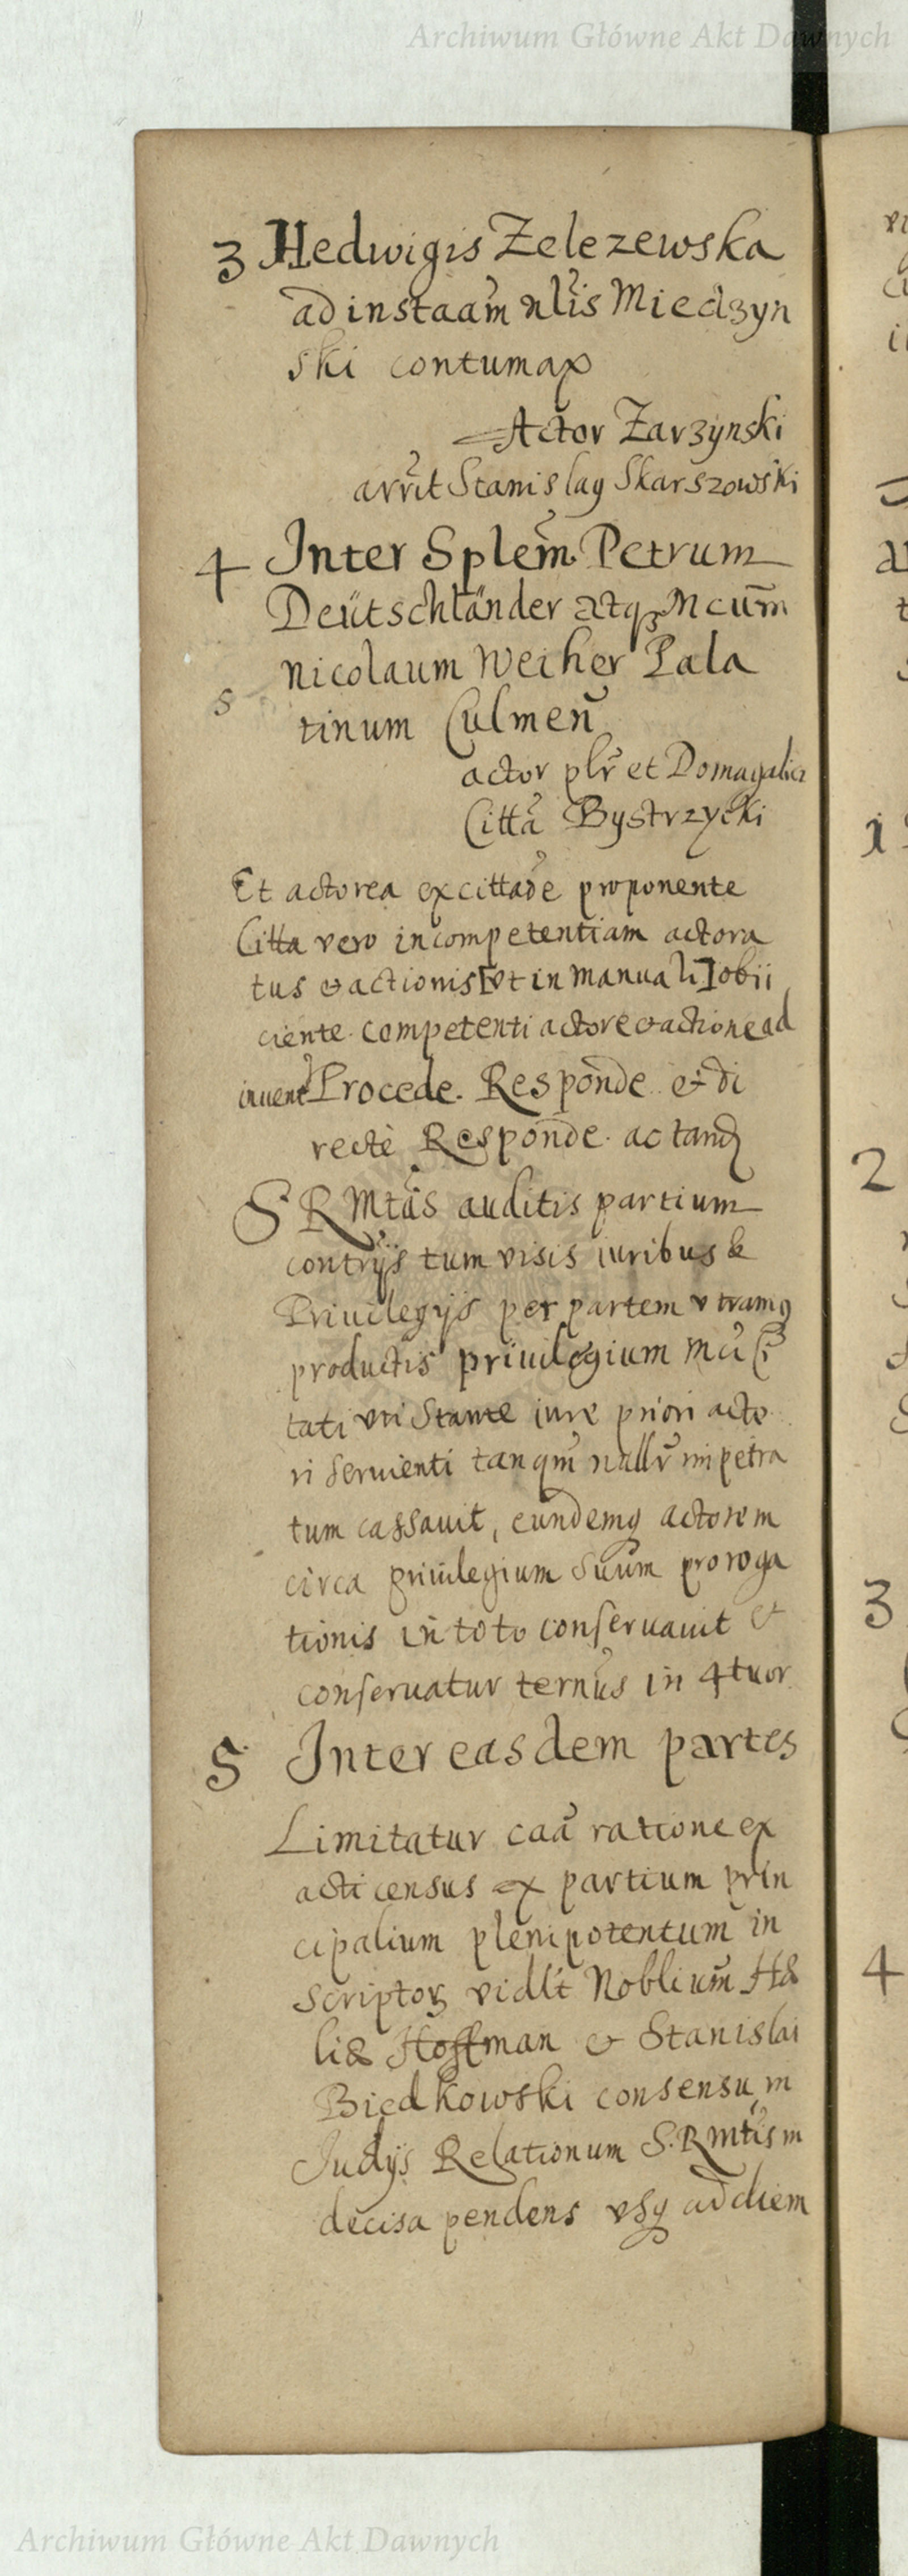 Archiwum Główne Akt Dawnych
3 Hedwigis Zelezewska
ad instaam nlis Miedzyn
ski contumax
Actor Zarzynski
arrit Stanislaus Skarszowski
4 Inter Splem Petrum
Deütschländer atq Mcum
Nicolaum Weiher Pala
5 tinum Culmen
actor plr et Domagalicz
Citta Bystrzycki
Et actorea ex cittade proponente
Citta vero incompetentiam actora
tus & actionis [vt in Manuali] obii
ciente competenti actore & actione ad
inuent Procede. Responde & di
rectè Responde. ac tand
S R Mtas auditis partium
contrijs tum visis iuribus &
Priuilegijs per partem vtramq
productis priuilegium
tati vti Stante iure priori acto
ri seruienti tanqm nullr impetra
tum cassauit, eundemq actorem
circa priuilegium suum proroga
tionis in toto conseruauit et
conseruatur ternus in 4tuor
5 Inter easdem partes
Limitatur caa ratione ex
acti census ex partium prin
cipalium plenipotentum in
scriptor vidlt Noblium He
liae Hoffman & Stanislai
Biedkowski consensum
Judijs Relationum S. R Mtis in
decisa pendens vsq ad diem
1
2
3
4
Archiwum Główne Akt Dawnych